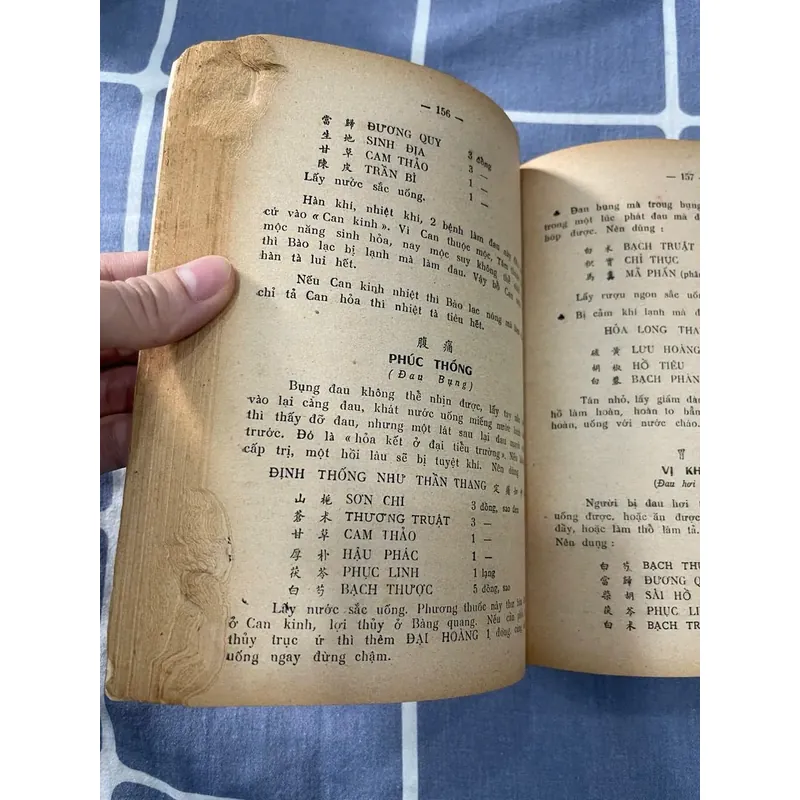 — 156 —
當 歸 ĐƯƠNG QUY 3 đồng
生 地 SINH ĐỊA 3 —
甘 草 CAM THẢO 1 —
陳 皮 TRẦN BÌ 1 —
Lấy nước sắc uống.
Hàn khí, nhiệt khí, 2 bệnh làm đau này
cứ vào « Can kinh ». Vì Can thuộc mộc,
mộc năng sinh hỏa, nay mộc suy không thể
thì Bào lạc bị lạnh mà làm đau. Vậy bổ Can
hàn tà lui hết.
Nếu Can kinh nhiệt thì Bào lạc nóng mà
chỉ tả Can hỏa thì nhiệt tà tiêu hết.
腹 痛
PHÚC THỐNG
(Đau Bụng)
Bụng đau không thể nhịn được, lấy tay
vào lại càng đau, khát nước uống miếng nước
thì thấy đỡ đau, nhưng một lát sau lại đau
trước. Đó là « hỏa kết ở đại tiểu trường ». Nên
cấp trị, một hồi lâu sẽ bị tuyệt khí. Nên dùng
ĐỊNH THỐNG NHƯ THẦN THANG 定 痛 如
山 梔 SƠN CHI 3 đồng, sao đen
蒼 朮 THƯƠNG TRUẬT 3 —
甘 草 CAM THẢO 1 —
厚 朴 HẬU PHÁC 1 —
茯 苓 PHỤC LINH 1 lạng
白 芍 BẠCH THƯỢC 5 đồng, sao
Lấy nước sắc uống. Phương thuốc này thư
ở Can kinh, lợi thủy ở Bàng quang. Nếu
thủy trục ứ thì thêm ĐẠI HOÀNG 1 đồng,
uống ngay đừng chậm.
— 157 —
♠ Đau bụng mà trong bụng
trong một lúc phát đau mà
hóp được. Nên dùng :
白 朮 BẠCH TRUẬT
枳 實 CHỈ THỰC
馬 糞 MÃ PHẨN (phân
Lấy rượu ngon sắc uống
♠ Bị cảm khí lạnh mà
HỎA LONG THA
硫 黃 LƯU HOÀNG
胡 椒 HỒ TIÊU
白 礬 BẠCH PHÀN
Tán nhỏ, lấy giấm
hồ làm hoàn, hoàn to bằng
hoàn, uống với nước cháo.
VỊ KH
(Đau hơi
Người bị đau hơi
uống được, hoặc ăn được
đầy, hoặc làm thổ làm tả.
Nên dùng :
白 芍 BẠCH THƯ
當 歸 ĐƯƠNG QU
柴 胡 SÀI HỒ
茯 苓 PHỤC LI
白 朮 BẠCH TR